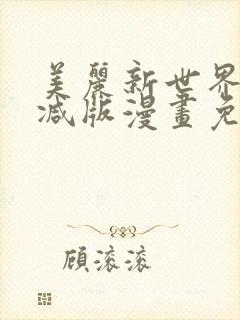 美麗新世界
減版漫畫免
顧滾滾